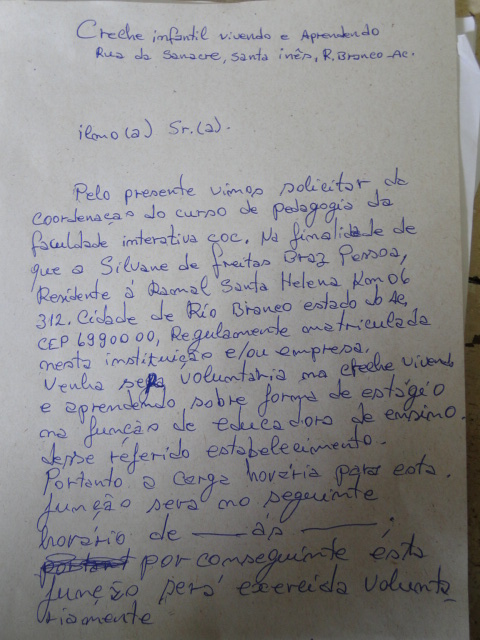 Creche infantil vivendo e Aprendendo
Rua da Sanacre, Santa inês, R. Branco-Ac.
ilmo(a) Sr.(a).
Pelo presente vimos solicitar da
coordenação do curso de pedagogia da
faculdade interativa coc. Na finalidade de
que a Silvane de freitas Braz Pessoa,
Residente á Ramal Santa Helena Km 06
312. Cidade de Rio Branco estado do Ac,
CEP 6990000, Regulamente matriculada
nesta instituição e/ou empresa.
Venha ser voluntaria na creche vivendo
e aprendendo sobre forma de estágio
na função de educadora de ensino.
desse referido estabelecimento.
Portanto a Carga horária para esta.
função sera no seguinte
horário de ____ às ____ ;
por conseguinte ésta
função será exercida volunta
riamente